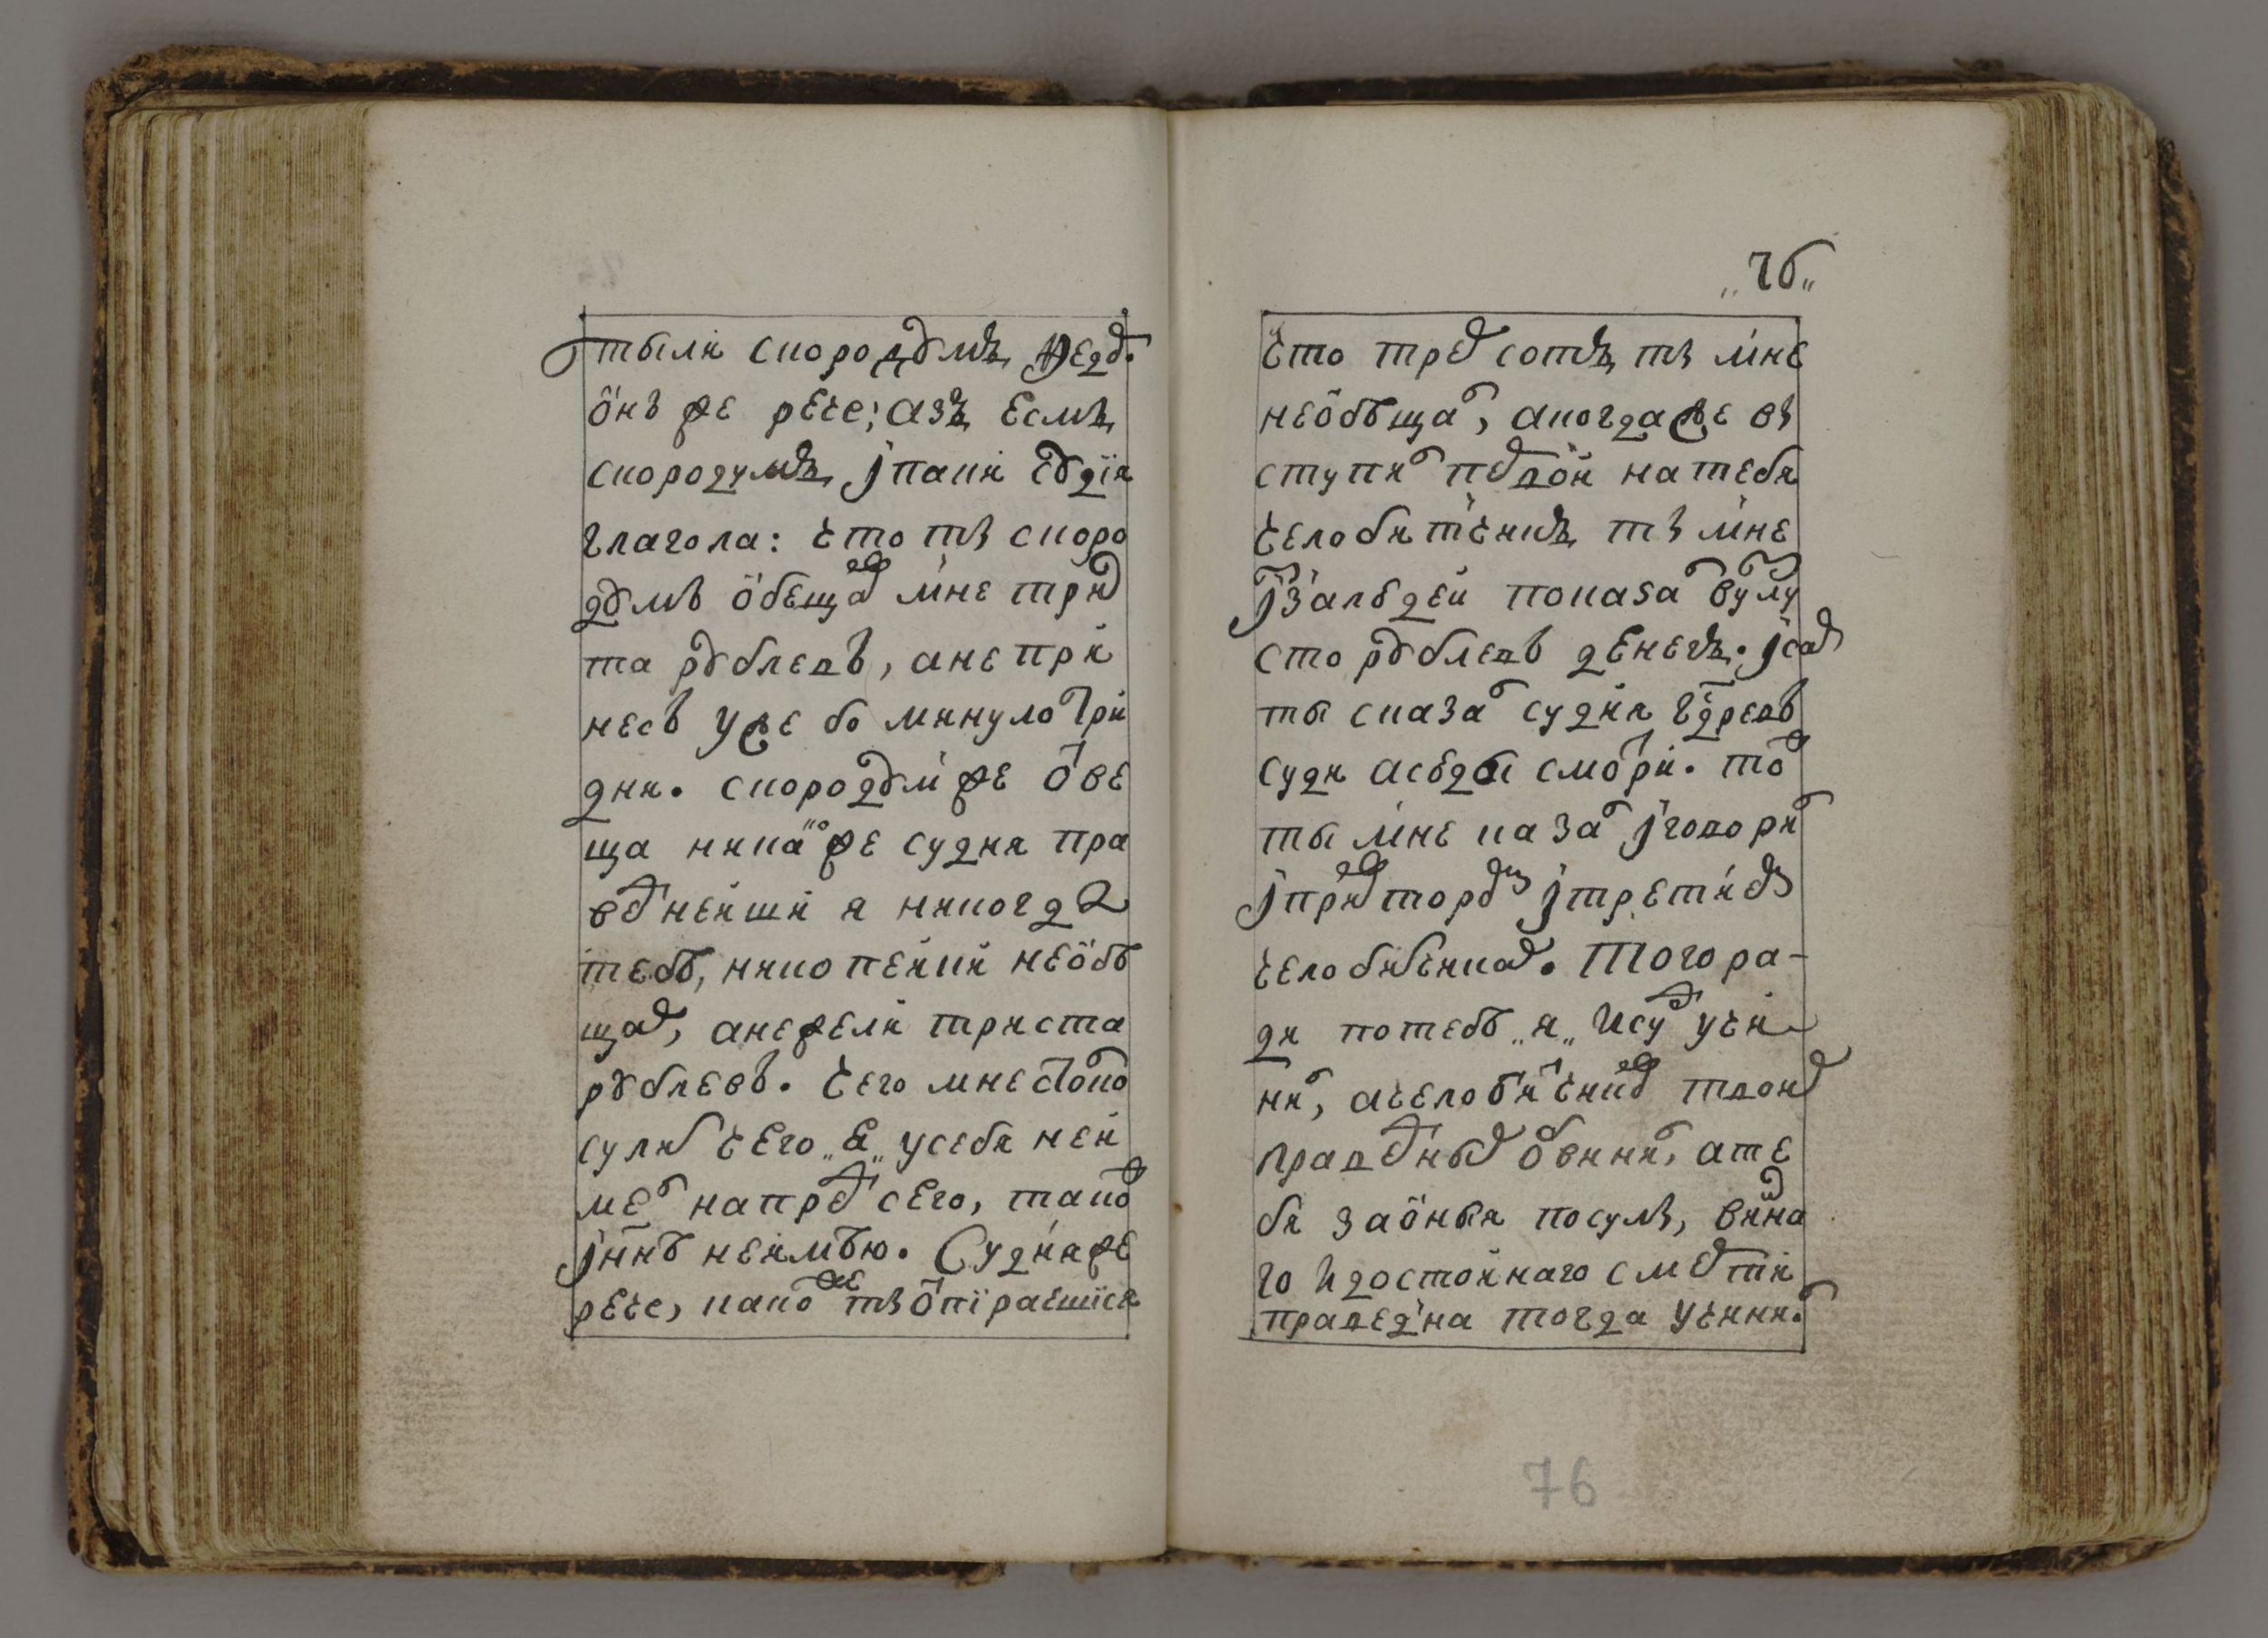 тыли скородꙋмъ, Федꙋ.
о́нъ же рече; азъ есмь
скородумъ, jпаки сꙋдїя
глагола: что тъ скоро
дꙋмъ о́бещал мне три
ста рꙋблевъ, а не при
несъ уже бо минуло три
дни. скородꙋм же ове
ща никак же судия пра
веднейши я никогда
тебѣ, ни копейки необѣ
щал, а нежели триста
рꙋблевъ. чего мне столко
сулит чего „я„ у себя неи
мел напред сего, такоже
jннѣ неимѣю. Судия же
рече, како же тъ о́пїраешися
„76„
что трех сотъ, тъ мне
необѣщал, а когда же въ
ступил первой на тебя
челобитчикъ, тъ мне
jзалѣдеи показал в узлу
сто рꙋблевъ денегъ. jсам
ты сказал судия гдревъ
суди а сѣды смотри. тож
ты мне казал jговорил
jпри втором jтретием
челобитчиках. Того ра-
ди потебѣ „я„ ису учи
нил, а челобитчиков твоих
праведных обвинил, а те
бя за о́ныя посулъ, винна
го идостойнаго смерти
праведна тогда учинил.
76